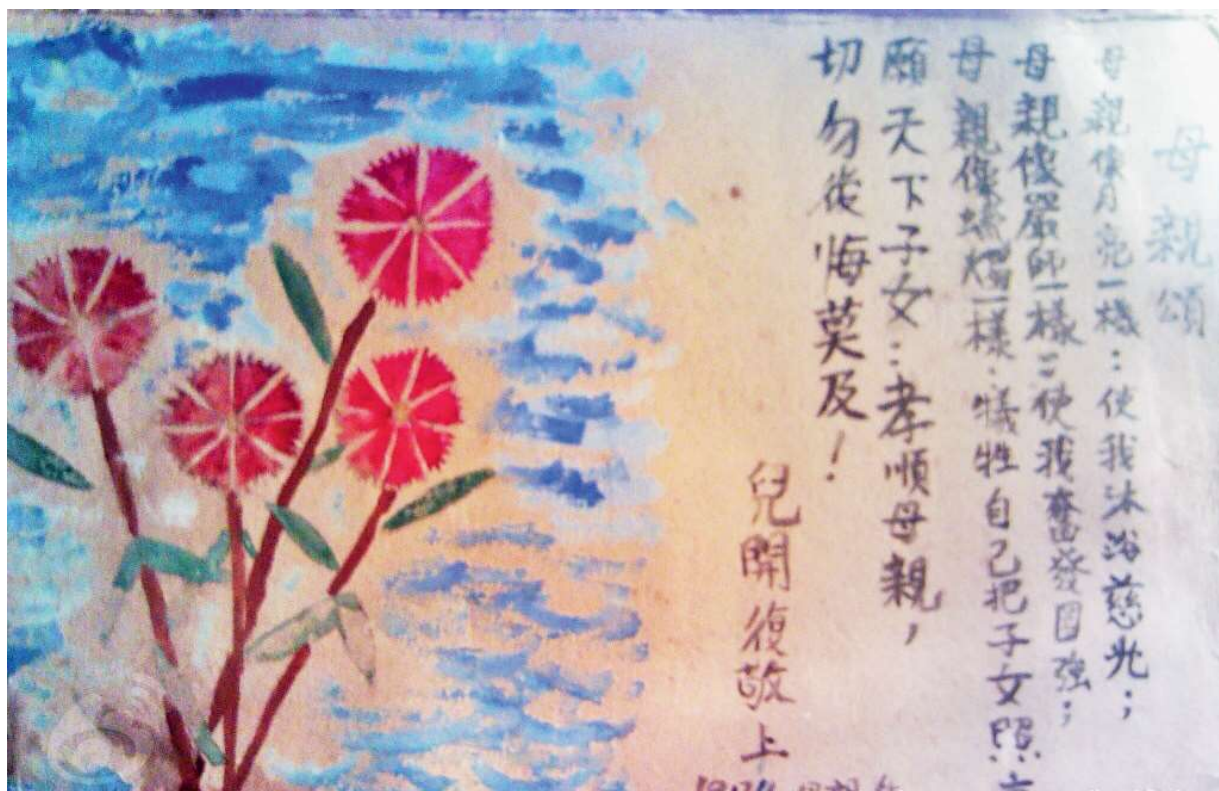 母親頌
母親像月亮一樣：使我沐浴慈光；
母親像嚴師一樣：使我奮發圖強；
母親像蠟燭一樣：犧牲自己把子女照
願天下子女：孝順母親，
切勿後悔莫及！
兒開復敬上